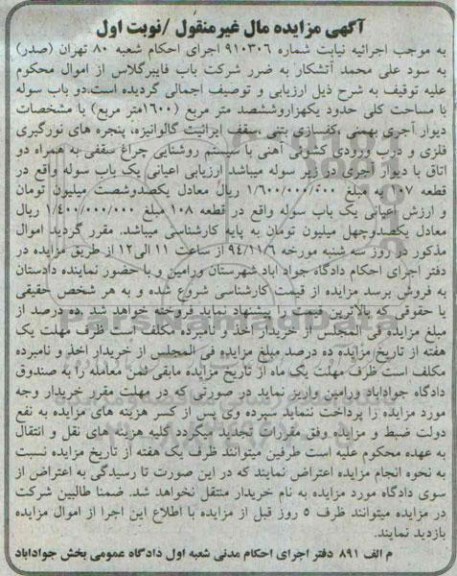 آگهی مزایده مال غیرمنقول /نوبت اول
به موجب اجرائیه نیابت شماره ۹۱۰۳۰۶ اجرای احکام شعبه ۸۰ تهران (صدر)
به سود علی محمد آتشکار به ضرر شرکت باب فایبرگلاس از اموال محکوم
علیه توقیف به شرح ذیل ارزیابی و توصیف اجمالی گردیده است.دو باب سوله
با مساحت کلی حدود یکهزاروششصد متر مربع (۱۶۰۰متر مربع) با مشخصات
دیوار آجری بهمنی ،کفسازی بتنی ،سقف ایرانیت گالوانیزه، پنجره های نورگیری
فلزی و درب ورودی کشوئی آهنی با سیستم روشنایی چراغ سقفی به همراه دو
اتاق با دیوار آجری در زیر سوله میباشد ارزیابی اعیانی یک باب سوله واقع در
قطعه ۱۰۷ به مبلغ ۱/۶۰۰/۰۰۰/۰۰۰ ریال معادل یکصدوشصت میلیون تومان
و ارزش اعیانی یک باب سوله واقع در قطعه ۱۰۸ مبلغ ۱/۴۰۰/۰۰۰/۰۰۰ ریال
معادل یکصدوچهل میلیون تومان به پایه کارشناسی میباشد. مقرر گردید اموال
مذکور در روز سه شنبه مورخه ۹۴/۱۱/۶ از ساعت ۱۱ الی۱۲ از طریق مزایده در
دفتر اجرای احکام دادگاه جواد اباد شهرستان ورامین و با حضور نماینده دادستان
به فروش برسد مزایده از قیمت کارشناسی شروع شده و به هر شخص حقیقی
یا حقوقی که بالاترین قیمت را پیشنهاد نماید فروخته خواهد شد .ده درصد از
مبلغ مزایده فی المجلس از خریدار اخذ و نامبرده مکلف است ظرف مهلت یک
هفته از تاریخ مزایده ده درصد مبلغ مزایده فی المجلس از خریدار اخذ و نامبرده
مکلف است ظرف مهلت یک ماه از تاریخ مزایده مابقی ثمن معامله را به صندوق
دادگاه جواداباد ورامین واریز نماید در صورتی که در مهلت مقرر خریدار وجه
مورد مزایده را پرداخت ننماید سپرده وی پس از کسر هزینه های مزایده به نفع
دولت ضبط و مزایده وفق مقررات تجدید میگردد کلیه هزینه های نقل و انتقال
به عهده محکوم علیه است طرفین میتوانند ظرف یک هفته از تاریخ مزایده نسبت
به نحوه انجام مزایده اعتراض نمایند که در این صورت تا رسیدگی به اعتراض از
سوی دادگاه مورد مزایده به نام خریدار منتقل نخواهد شد. ضمنا طالبین شرکت
در مزایده میتوانند ظرف ۵ روز قبل از مزایده با اطلاع این اجرا از اموال مزایده
بازدید نمایند.
م الف ۸۹۱ دفتر اجرای احکام مدنی شعبه اول دادگاه عمومی بخش جواداباد